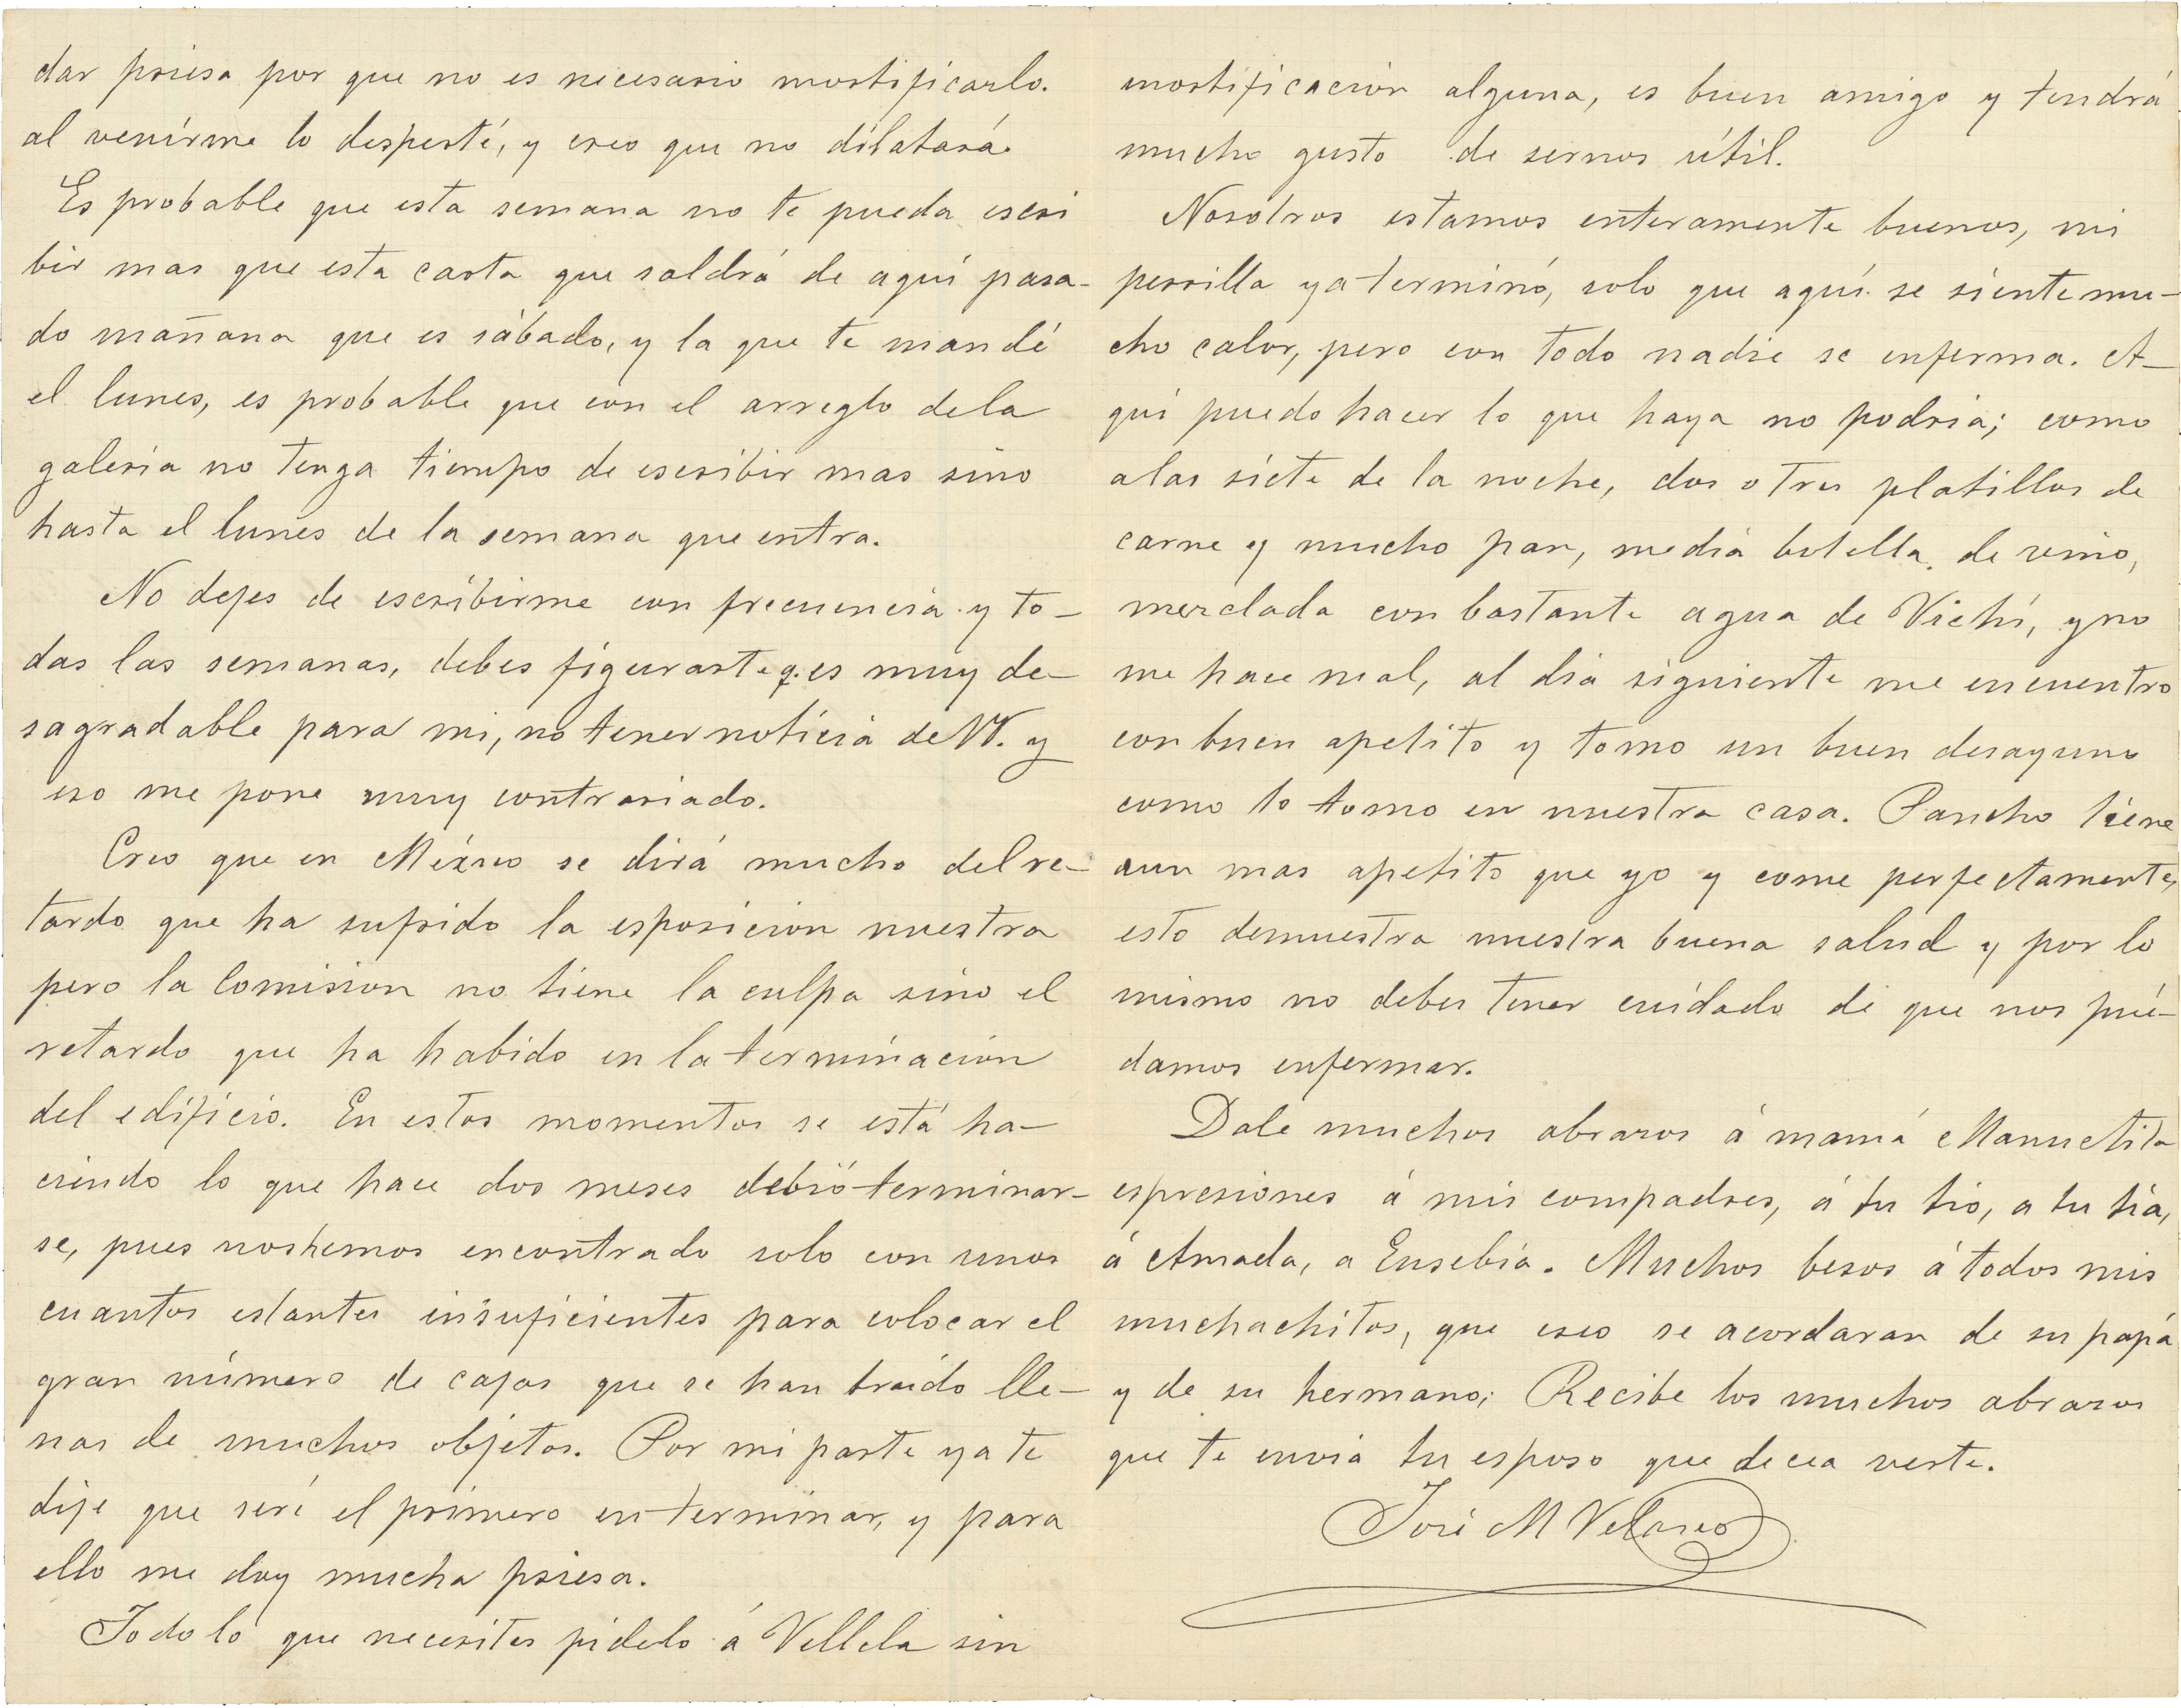 dar priesa por que no es necesario mortificarlo.
al venirme lo desperté, y creo que no dilatará.
Es probable que esta semana no te pueda escri
bir mas que esta carta que saldrá de aquí pasa-
do mañana que es sábado, y la que te mandé
el lunes, es probable que con el arreglo dela
galeria no tenga tiempo de escribir mas sino
hasta el lunes de la semana que entra.
No dejes de escribirme con frecuencia y to-
das las semanas, debes figurarte q. es muy de-
sagradable para mi, no tener noticia de VV. y
eso me pone muy contrariado.
Creo que en México se dirá mucho del re-
tardo que ha sufrido la esposicion nuestra
pero la Comision no tiene la culpa sino el
retardo que ha habido en la terminación
del edificio. En estos momentos se está ha-
ciendo lo que hace dos meses debió terminar-
se, pues nos hemos encontrado solo con unos
cuantos estantes insuficientes para colocar el
gran número de cajas que se han traido lle-
nas de muchos objetos. Por mi parte ya te
dije que seré el primero en terminar, y para
ello me doy mucha priesa.
Todo lo que necesites pidelo á Vellela sin
mortificación alguna, es buen amigo y tendrá
mucho gusto de sernos útil.
Nosotros estamos enteramente buenos, mi
perrilla ya terminó, solo que aquí se siente mu-
cho calor, pero con todo nadie se enferma. A-
quí puedo hacer lo que haya no podria; como
alas siete de la noche, dos o tres platillos de
carne y mucho pan, media botella de vino,
mezclada con bastante agua de Vichí, y no
me hace mal, al dia siguiente me encuentro
con buen apetito y tomo un buen desayuno
como lo tomo en nuestra casa. Pancho tiene
aun mas apetito que yo y come perfectamente,
esto demuestra nuestra buena salud y por lo
mismo no debes tener cuidado de que nos pué-
damos enfermar.
Dale muchos abrazos á mamá Manuelita
espresiones á mis compadres, á tu tio, a tu tía,
á Amada, a Eusebia. Muchos besos á todos mis
muchachitos, que creo se acordaran de su papá
y de su hermano; Recibe los muchos abrazos
que te envia tu esposo que decea verte.
José M Velasco